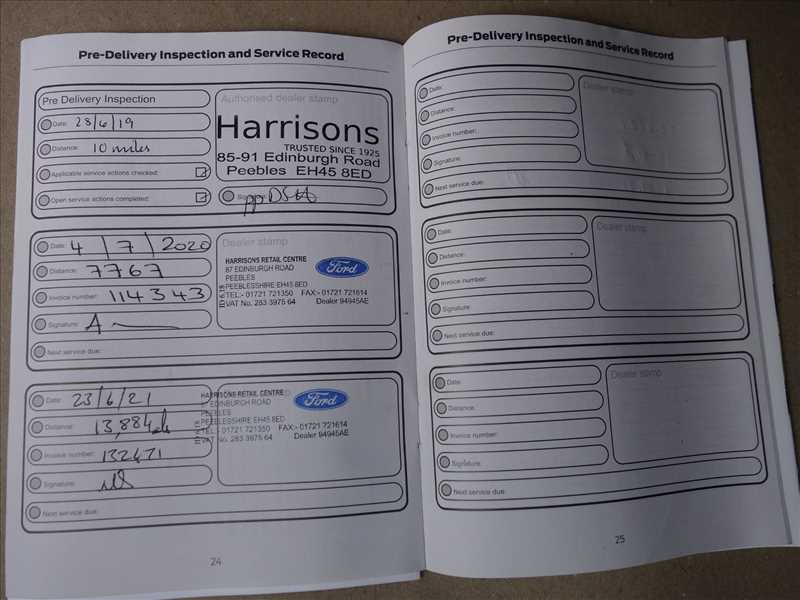 Pre-Delivery Inspection and Service Record
Pre Delivery Inspection
Date: 28/6/19
Distance: 10 miles
Applicable service actions checked:
Open service actions completed:
Authorised dealer stamp
Harrisons
TRUSTED SINCE 1925
85-91 Edinburgh Road
Peebles EH45 8ED
Date: 4/7/2020
Distance: 7767
Invoice number: 114343
Signature:
Next service due:
Dealer stamp
HARRISONS RETAIL CENTRE
87 EDINBURGH ROAD
PEEBLES
PEEBLESSHIRE EH45 8ED
TEL:- 01721 721350 FAX:- 01721 721614
VAT No. 283 3975 64 Dealer 94945AE
Ford
Date: 23/6/21
Distance: 13,884
Invoice number: 132471
Signature:
Next service due:
HARRISONS RETAIL CENTRE
EDINBURGH ROAD
PEEBLES
PEEBLESSHIRE EH45 8ED
TEL:- 01721 721350 FAX:- 01721 721614
VAT No. 283 3975 64 Dealer 94945AE
Ford
24
Pre-Delivery Inspection and Service Record
Date:
Distance:
Invoice number:
Signature:
Next service due:
Dealer stamp
Date:
Distance:
Invoice number:
Signature:
Next service due:
Dealer stamp
Date:
Distance:
Invoice number:
Signature:
Next service due:
Dealer stamp
25